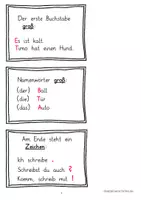 Der erste Buchstabe
groß:
Es ist kalt.
Timo hat einen Hund.
Namenwörter groß:
(der) Ball
(die) Tür
(das) Auto
Am Ende steht ein
Zeichen:
Ich schreibe .
Schreibst du auch ?
Komm, schreib mit !